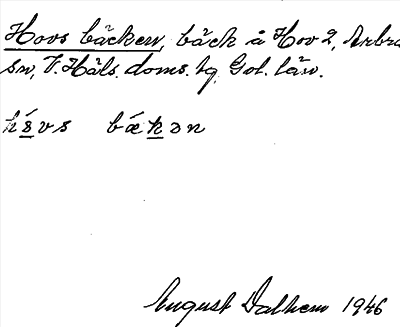 Hovs bäcken, bäck å Hov 2, Arbrå
sn, V. Häls. doms. tg, Gol. län.
hóvs bǽkən
August Dalhem 1946